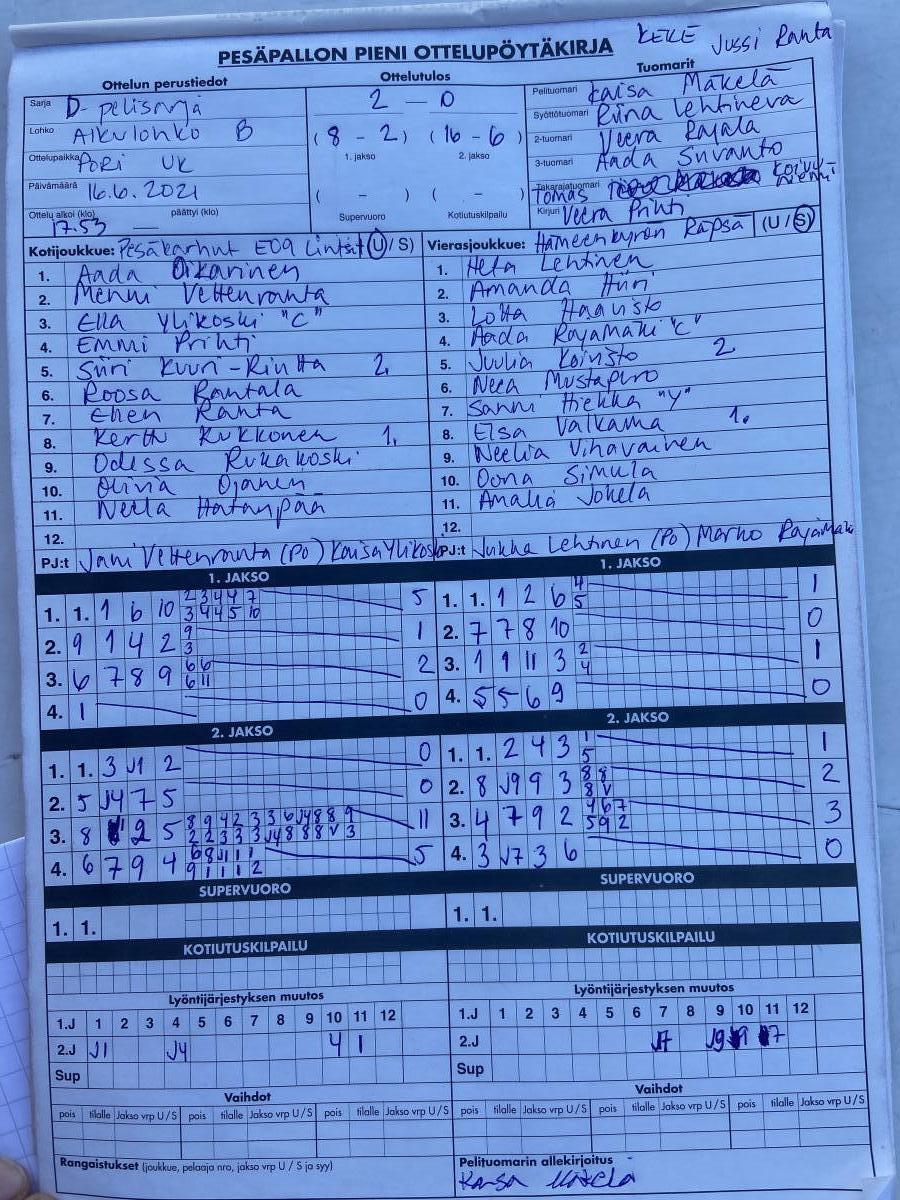 PESÄPALLON PIENI OTTELUPÖYTÄKIRJA
KEKE Jussi Ranta
Ottelun perustiedot
Sarja D-pelisarja
Lohko Alkulohko B
Ottelupaikka PORI UK
Päivämäärä 16.6.2021
Ottelu alkoi (klo) päättyi (klo)
17.53 —
Ottelutulos
2 — 0
(8 - 2) (16 - 6)
1. jakso 2. jakso
( - ) ( - )
Supervuoro Kotiutuskilpailu
Tuomarit
Pelituomari Kaisa Mäkelä
Syöttötuomari Riina Lehtineva
2-tuomari Veera Rajala
3-tuomari Aada Suvanto
Takarajatuomari Tomas Koivuniemi
Kirjuri Veera Prihti
Kotijoukkue: Pesäkarhut E09 Lintsit (U / S)
1. Aada Oikarinen
2. Menni Vettenranta
3. Ella Ylikoski "C"
4. Emmi Prihti
5. Siiri Kuuri-Riutta 2.
6. Roosa Rantala
7. Ellen Ranta
8. Kerttu Kukkonen 1.
9. Odessa Rukakoski
10. Olivia Ojanen
11. Neela Hatanpää
12.
PJ:t Jani Vettenranta (PO) Kaisa Ylikoski
Vierasjoukkue: Hämeenkyrön Räpsä (U / S)
1. Heta Lehtinen
2. Amanda Hiiri
3. Lotta Haavisto
4. Aada Rajamäki "C"
5. Juulia Koivisto 2
6. Neea Mustapuro
7. Sanni Hiekka "Y"
8. Elsa Valkama 1.
9. Neelia Vihavainen
10. Oona Simula
11. Amalia Jokela
12.
PJ:t Jukka Lehtinen (PO) Marko Rajamäki
1. JAKSO
1. 1. 1 6 10 2 3 4 4 7 5
3 4 4 5 10
2. 9 1 4 2 9 1
3
3. 6 7 8 9 6 6 2
6 11
4. 1 0
1. JAKSO
1. 1. 1 2 6 4 1
5
2. 7 7 8 10 0
3. 1 9 11 3 2 1
4
4. 5 5 6 9 0
2. JAKSO
1. 1. 3 J1 2 0
2. 5 J4 7 5 0
3. 8 2 5 8 9 4 2 3 3 6 J4 8 8 9 11
2 2 3 3 3 J4 8 8 8 V 3
4. 6 7 9 4 6 8 J1 1 1 5
9 1 1 1 2
2. JAKSO
1. 1. 2 4 3 1 1
5
2. 8 J9 9 3 8 8 2
8 V
3. 4 7 9 2 4 6 7 3
5 9 2
4. 3 J7 3 6 0
SUPERVUORO
1. 1.
SUPERVUORO
1. 1.
KOTIUTUSKILPAILU
KOTIUTUSKILPAILU
Lyöntijärjestyksen muutos
1.J 1 2 3 4 5 6 7 8 9 10 11 12
2.J J1 J4 4 1
Sup
Lyöntijärjestyksen muutos
1.J 1 2 3 4 5 6 7 8 9 10 11 12
2.J J7 J9 9 7
Sup
Vaihdot
pois tilalle Jakso vrp U / S pois tilalle Jakso vrp U / S pois tilalle Jakso vrp U / S
Vaihdot
pois tilalle Jakso vrp U / S pois tilalle Jakso vrp U / S pois tilalle Jakso vrp U / S
Rangaistukset (joukkue, pelaaja nro, jakso vrp U / S ja syy)
Pelituomarin allekirjoitus
Kaisa Mäkelä